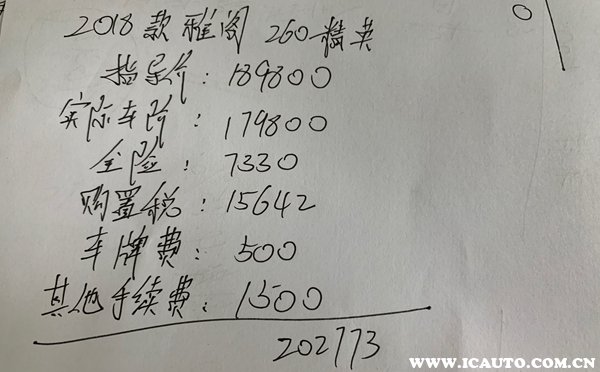 2018款雅阁 260精英
指导价：189800
实际车价：179800
全险：7330
购置税：15642
车牌费：500
其他手续费：1500
202773
WWW.ICAUTO.COM.CN